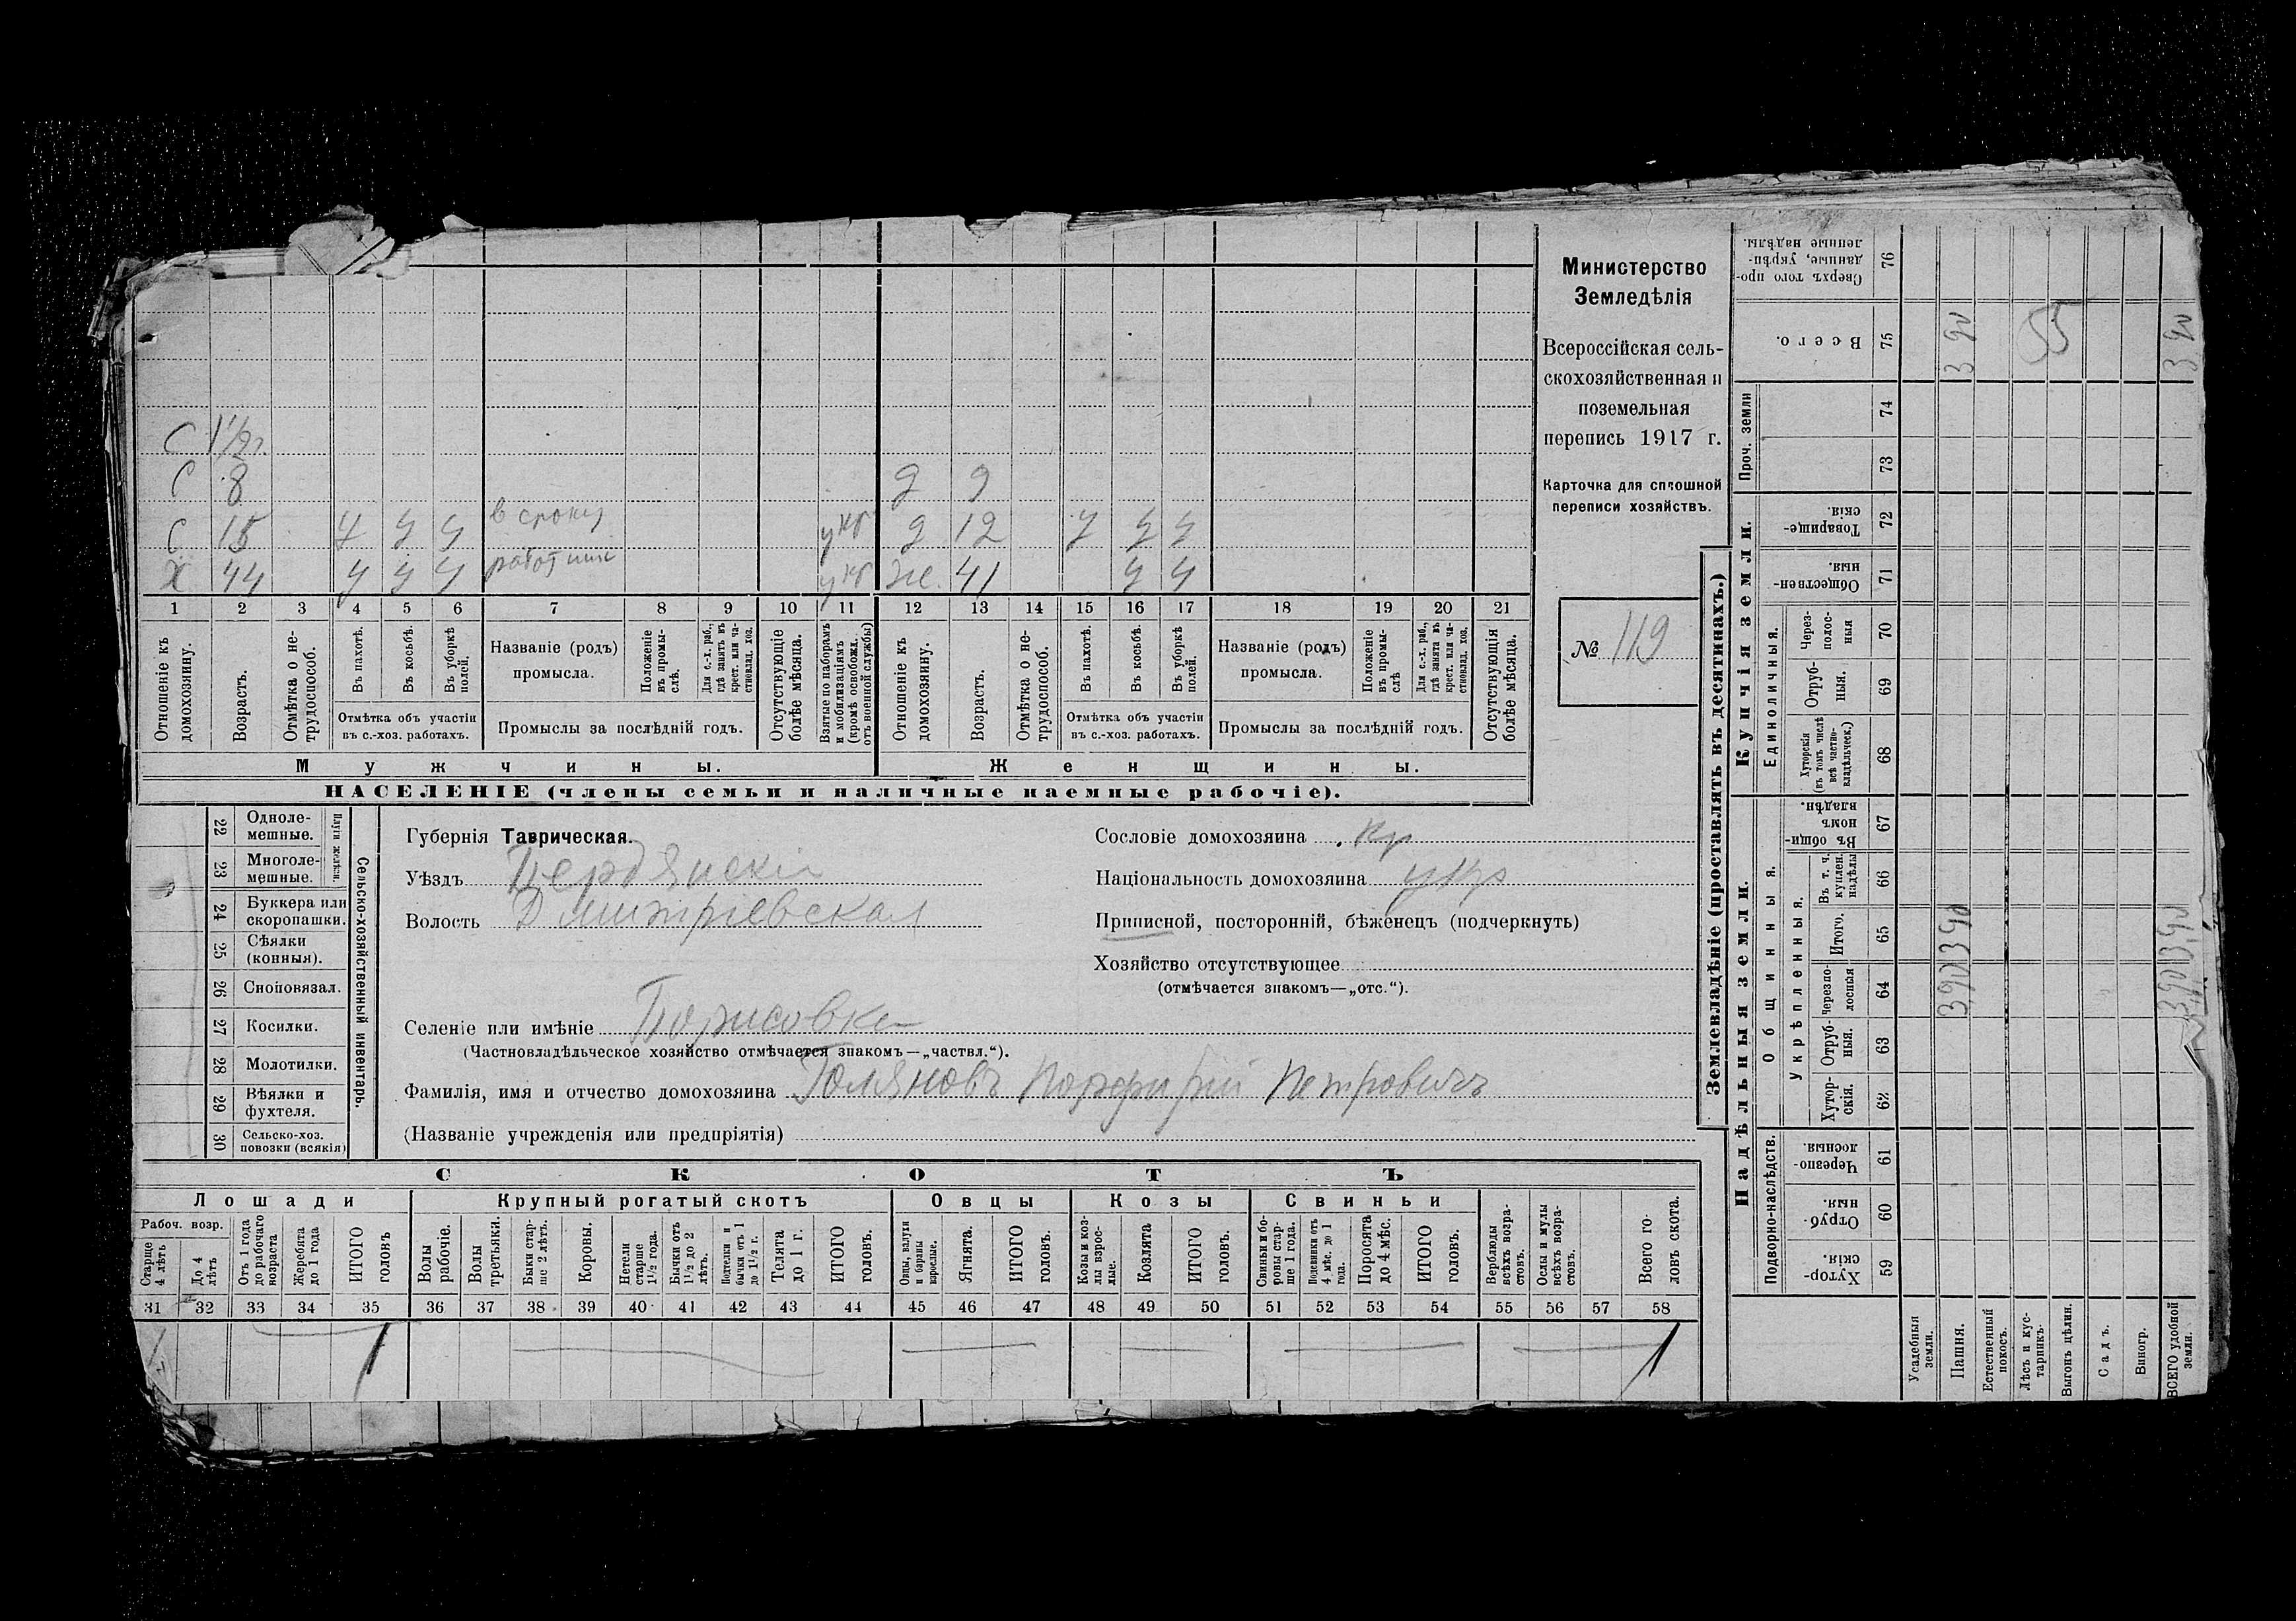 С 1½ г.
С 8 д 9
С 15 у у у в сроку укр д 12 у у у
Х 44 у у у укр ж. 41 у у
1 2 3 4 5 6 7 8 9 10 11 12 13 14 15 16 17 18 19 20 21
Отношеніе къ домохозяину.
Возрастъ.
Отмѣтка о нетрудоспособ.
Въ пахотѣ.
Въ косьбѣ.
Въ уборкѣ полей.
Отмѣтка объ участіи
въ с.-хоз. работахъ.
Названіе (родъ)
промысла.
Положеніе въ промыслѣ.
Для с.-х. раб., гдѣ занятъ въ крест. или частновлад. хоз.
Промыслы за послѣдній годъ.
Отсутствующіе болѣе мѣсяца.
Взятые по наборамъ и мобилизаціямъ (кромѣ освобожд. отъ военной службы)
Отношеніе къ домохозяину.
Возрастъ.
Отмѣтка о нетрудоспособ.
Въ пахотѣ.
Въ косьбѣ.
Въ уборкѣ полей.
Отмѣтка объ участіи
въ с.-хоз. работахъ.
Названіе (родъ)
промысла.
Положеніе въ промыслѣ
Для с.-х. раб., гдѣ занята въ крест. или частновлад. хоз.
Промыслы за послѣдній годъ.
Отсутствующія болѣе мѣсяца.
Мужчины. Женщины.
НАСЕЛЕНІЕ (члены семьи и наличные наемные рабочіе).
Министерство
Земледѣлія
Всероссійская сель-
скохозяйственная и
поземельная
перепись 1917 г.
Карточка для сплошной
переписи хозяйствъ.
№ 119
Сельско-хозяйственный инвентарь.
Плуги желѣзн.
22 Однолемешные.
23 Многолемешные.
24 Буккера или скоропашки.
25 Сѣялки (конныя).
26 Сноповязал.
27 Косилки.
28 Молотилки.
29 Вѣялки и фухтеля.
30 Сельско-хоз. повозки (всякія)
Губернія Таврическая.
Уѣздъ Бердянскій
Волость Дмитріевская
Сословіе домохозяина кр
Національность домохозяина укр
Приписной, посторонній, бѣженецъ (подчеркнуть)
Хозяйство отсутствующее
(отмѣчается знакомъ—„отс.“).
Селеніе или имѣніе Борисовка
(Частновладѣльческое хозяйство отмѣчается знакомъ—„частвл.“).
Фамилія, имя и отчество домохозяина Голяновъ Порфирій Петровичъ
(Названіе учрежденія или предпріятія)
СКОТЪ
Лошади Крупный рогатый скотъ Овцы Козы Свиньи
Рабоч. возр.
Старше 4 лѣтъ
До 4 лѣтъ
Отъ 1 года до рабочаго возраста
Жеребята до 1 года
ИТОГО головъ
Волы рабочіе.
Волы третьяки.
Быки старше 2 лѣтъ.
Коровы.
Нетели старше 1½ года.
Бычки отъ 1½ до 2 лѣтъ.
Подтелки и бычки отъ 1 до 1½ г.
Телята до 1 г.
ИТОГО головъ.
Овцы, валухи и бараны взрослые.
Ягнята.
ИТОГО головъ.
Козы и козлы взрослые.
Козлята
ИТОГО головъ.
Свиньи и боровы старше 1 года.
Подсвинки отъ 4 мѣс. до 1 года.
Поросята до 4 мѣс.
ИТОГО головъ.
Верблюды всѣхъ возрастовъ.
Ослы и мулы всѣхъ возрастовъ.
Всего головъ скота.
31 32 33 34 35 36 37 38 39 40 41 42 43 44 45 46 47 48 49 50 51 52 53 54 55 56 57 58
1 1 1
Землевладѣніе (проставлять въ десятинахъ.)
Надѣльныя земли. Купчія земли. Проч. земли
Подворно-наслѣдств. Общинныя. Единоличныя.
Укрѣпленныя.
Хуторскія. 59
Отрубныя. 60
Черезполосныя. 61
Хуторскія. 62
Отрубныя. 63
Черезполосныя 64
Итого. 65
Въ т. ч. куплен. надѣлы 66
Въ общинномъ владѣн. 67
Хуторскія (въ томъ числѣ всѣ частновладѣльческ.) 68
Отрубныя. 69
Черезполосныя 70
Общественныя. 71
Товарищескія. 72
73
74
Всего. 75
Сверхъ того проданные, укрѣпленные надѣлы. 76
Усадебныя земли.
Пашня. 390 390 390
Естественный покосъ.
Лѣсъ и кустарникъ.
Выгонъ цѣлин.
Садъ.
Виногр.
ВСЕГО удобной земли. 390 390 390
55